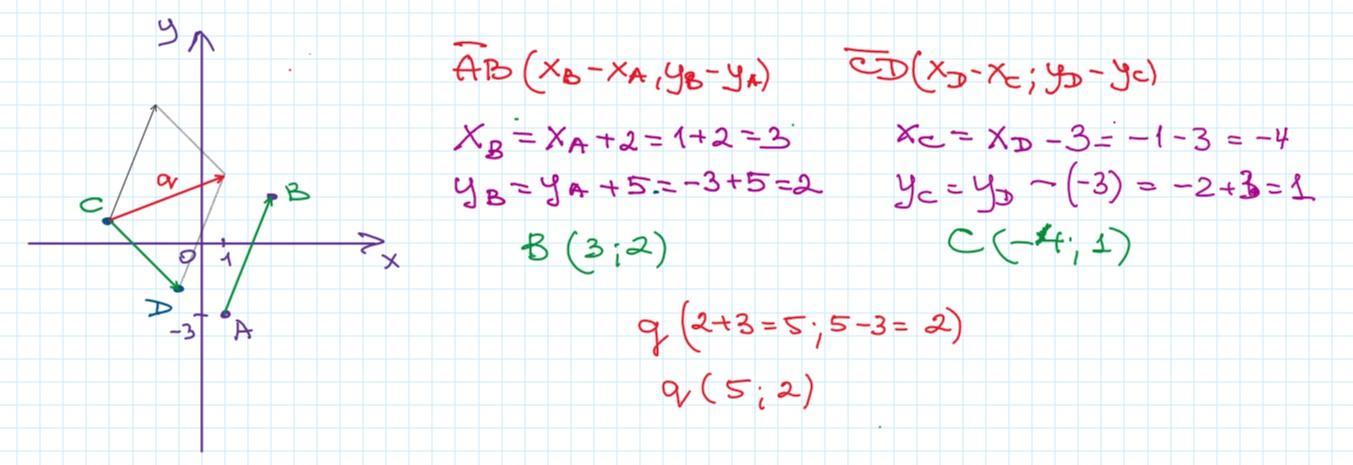 y
a
C
B
0
1
x
D
-3
A
A̅B̅ (x_B - x_A, y_B - y_A)
C̅D̅(x_D - x_C; y_D - y_C)
x_B = x_A + 2 = 1+2 = 3
x_C = x_D - 3 = -1 - 3 = -4
y_B = y_A + 5 = -3+5 = 2
y_C = y_D - (-3) = -2+3 = 1
B (3; 2)
C (-4; 1)
q (2+3 = 5; 5-3 = 2)
q (5; 2)